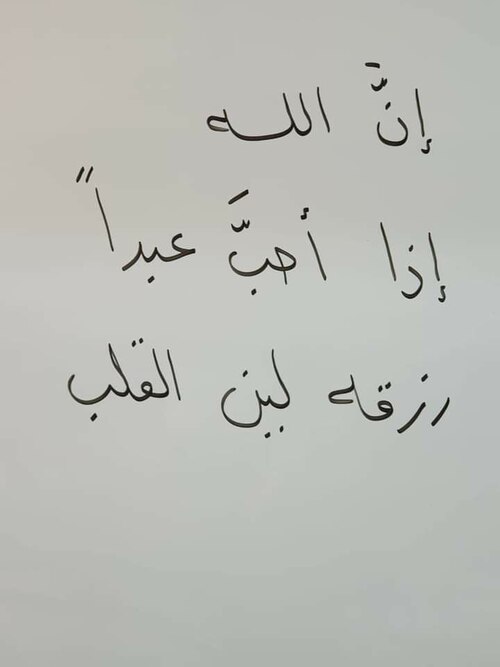 إنَّ الله
إذا أحبَّ عبداً
رزقه لين القلب